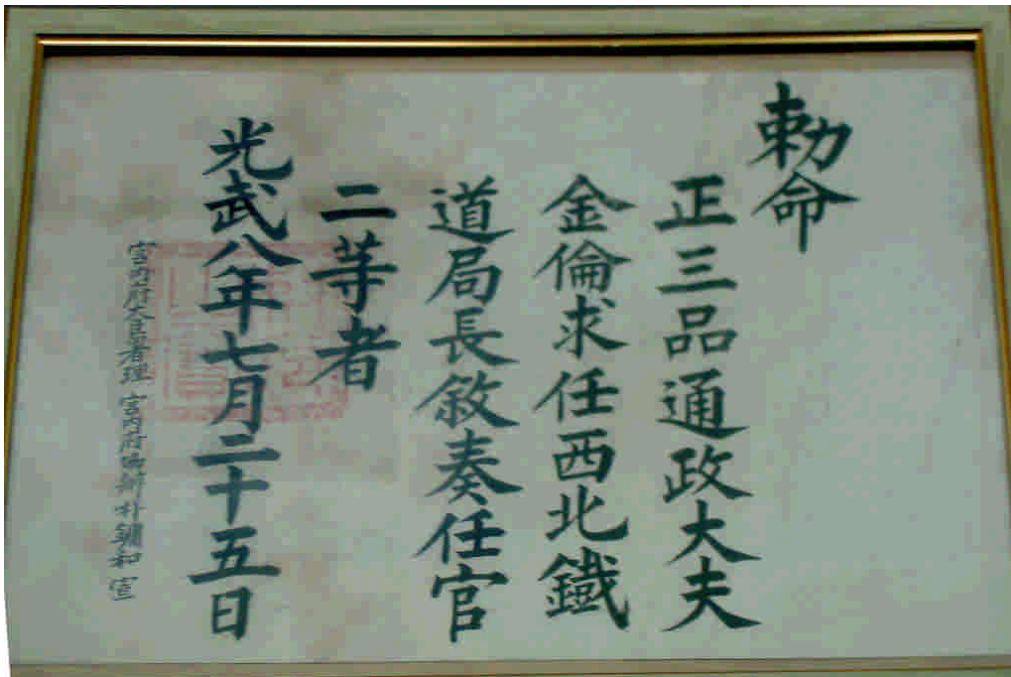 勅命
正三品通政大夫
金倫求任西北鐵
道局長敘奏任官
二等者
光武八年七月二十五日
宮內府大臣署理 宮內府協辦朴鏞和 宣